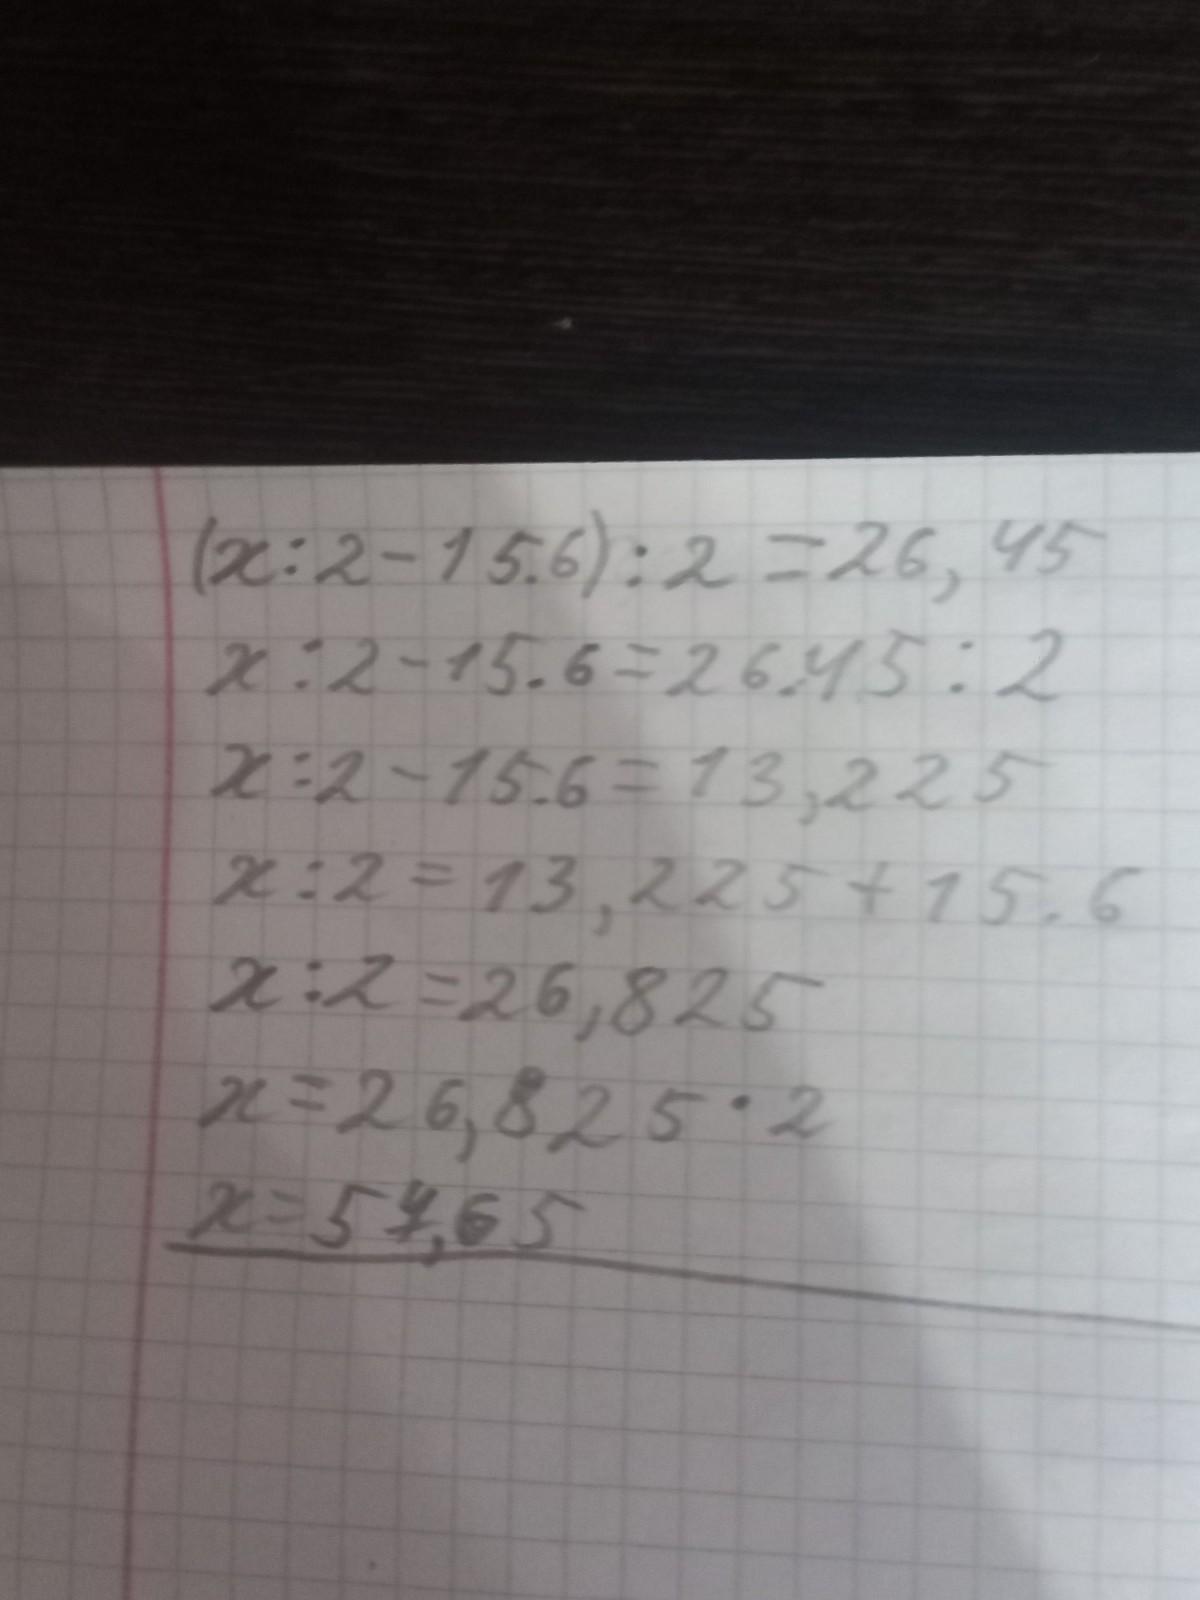 (x:2-15.6):2=26,45
x:2-15.6=26.45:2
x:2-15.6=13,225
x:2=13,225+15.6
x:2=26,825
x=26,825·2
x=57,65